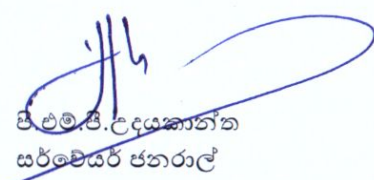 පී.එම්.පී.උදයකාන්ත
සර්වේයර් ජනරාල්